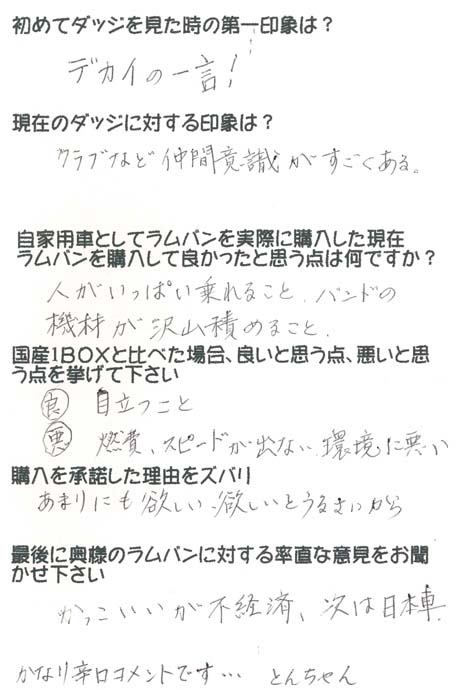 初めてダッジを見た時の第一印象は？
デカイの一言！
現在のダッジに対する印象は？
クラブなど仲間意識がすごくある。
自家用車としてラムバンを実際に購入した現在
ラムバンを購入して良かったと思う点は何ですか？
人がいっぱい乗れること、バンドの
機材が沢山積めること．
国産1BOXと比べた場合、良いと思う点、悪いと思
う点を挙げて下さい
良 目立つこと
悪 燃費、スピードが出ない、環境に悪い
購入を承諾した理由をズバリ
あまりにも欲しい、欲しいとうるさいから
最後に奥様のラムバンに対する率直な意見をお聞
かせ下さい
かっこいいが不経済、次は日本車．
かなり辛口コメントです… とんちゃん